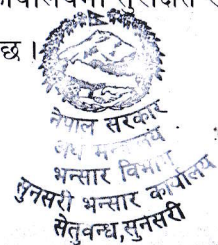 छ ।
नेपाल सरकार
अर्थ मन्त्रालय
भन्सार विभाग
सुनसरी भन्सार कार्यालय
सेतुवन्ध,सुनसरी